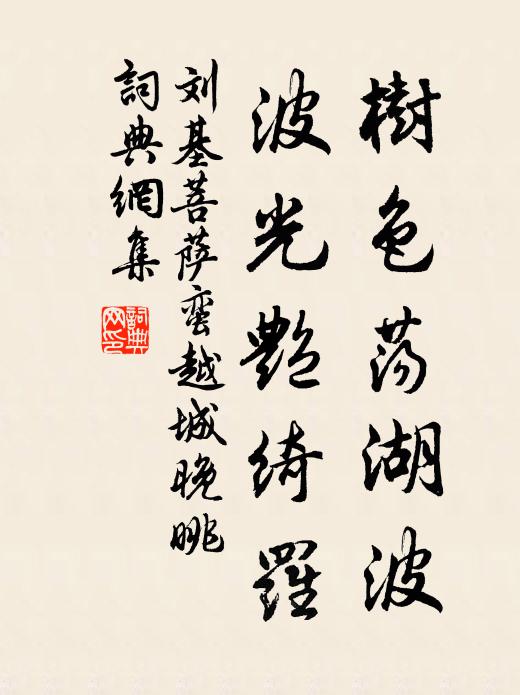 樹色蕩湖波
波光艷綺羅
刘基菩萨蛮越城晚眺
詞典網集
詞典网印